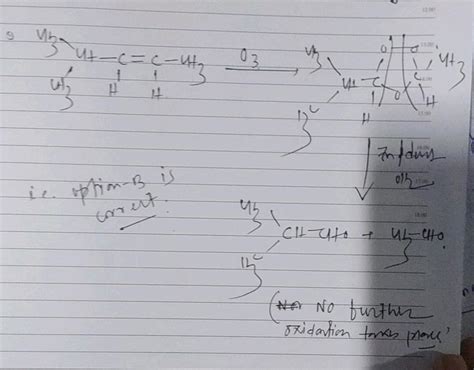 CH3
CH — C = C — CH3
CH3 H H
O3
CH3
CH — C
O O
O
C CH3
H3C
H H
Zn/dust
i.e. option-B is
correct.
CH3
CH-CHO + CH3-CHO.
H3C
(No further
oxidation takes place